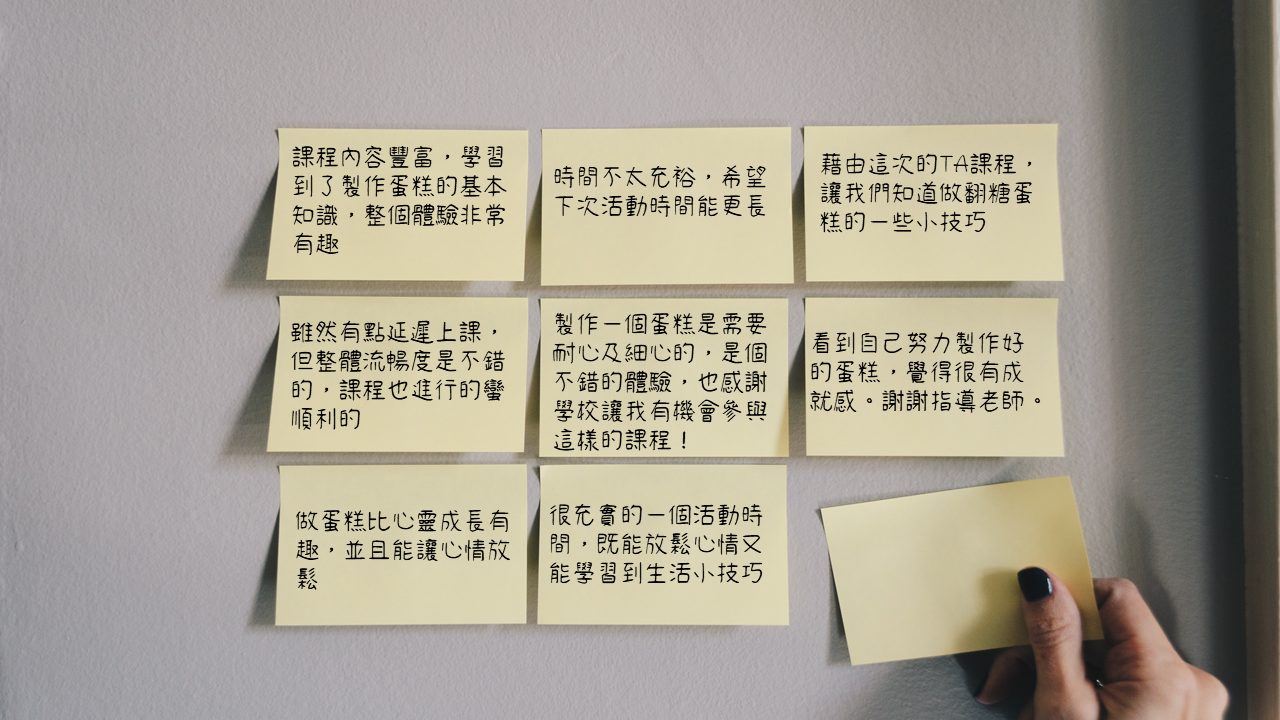 課程內容豐富，學習
到了製作蛋糕的基本
知識，整個體驗非常
有趣
時間不太充裕，希望
下次活動時間能更長
藉由這次的TA課程，
讓我們知道做翻糖蛋
糕的一些小技巧
雖然有點延遲上課，
但整體流暢度是不錯
的，課程也進行的蠻
順利的
製作一個蛋糕是需要
耐心及細心的，是個
不錯的體驗，也感謝
學校讓我有機會參與
這樣的課程！
看到自己努力製作好
的蛋糕，覺得很有成
就感。謝謝指導老師。
做蛋糕比心靈成長有
趣，並且能讓心情放
鬆
很充實的一個活動時
間，既能放鬆心情又
能學習到生活小技巧